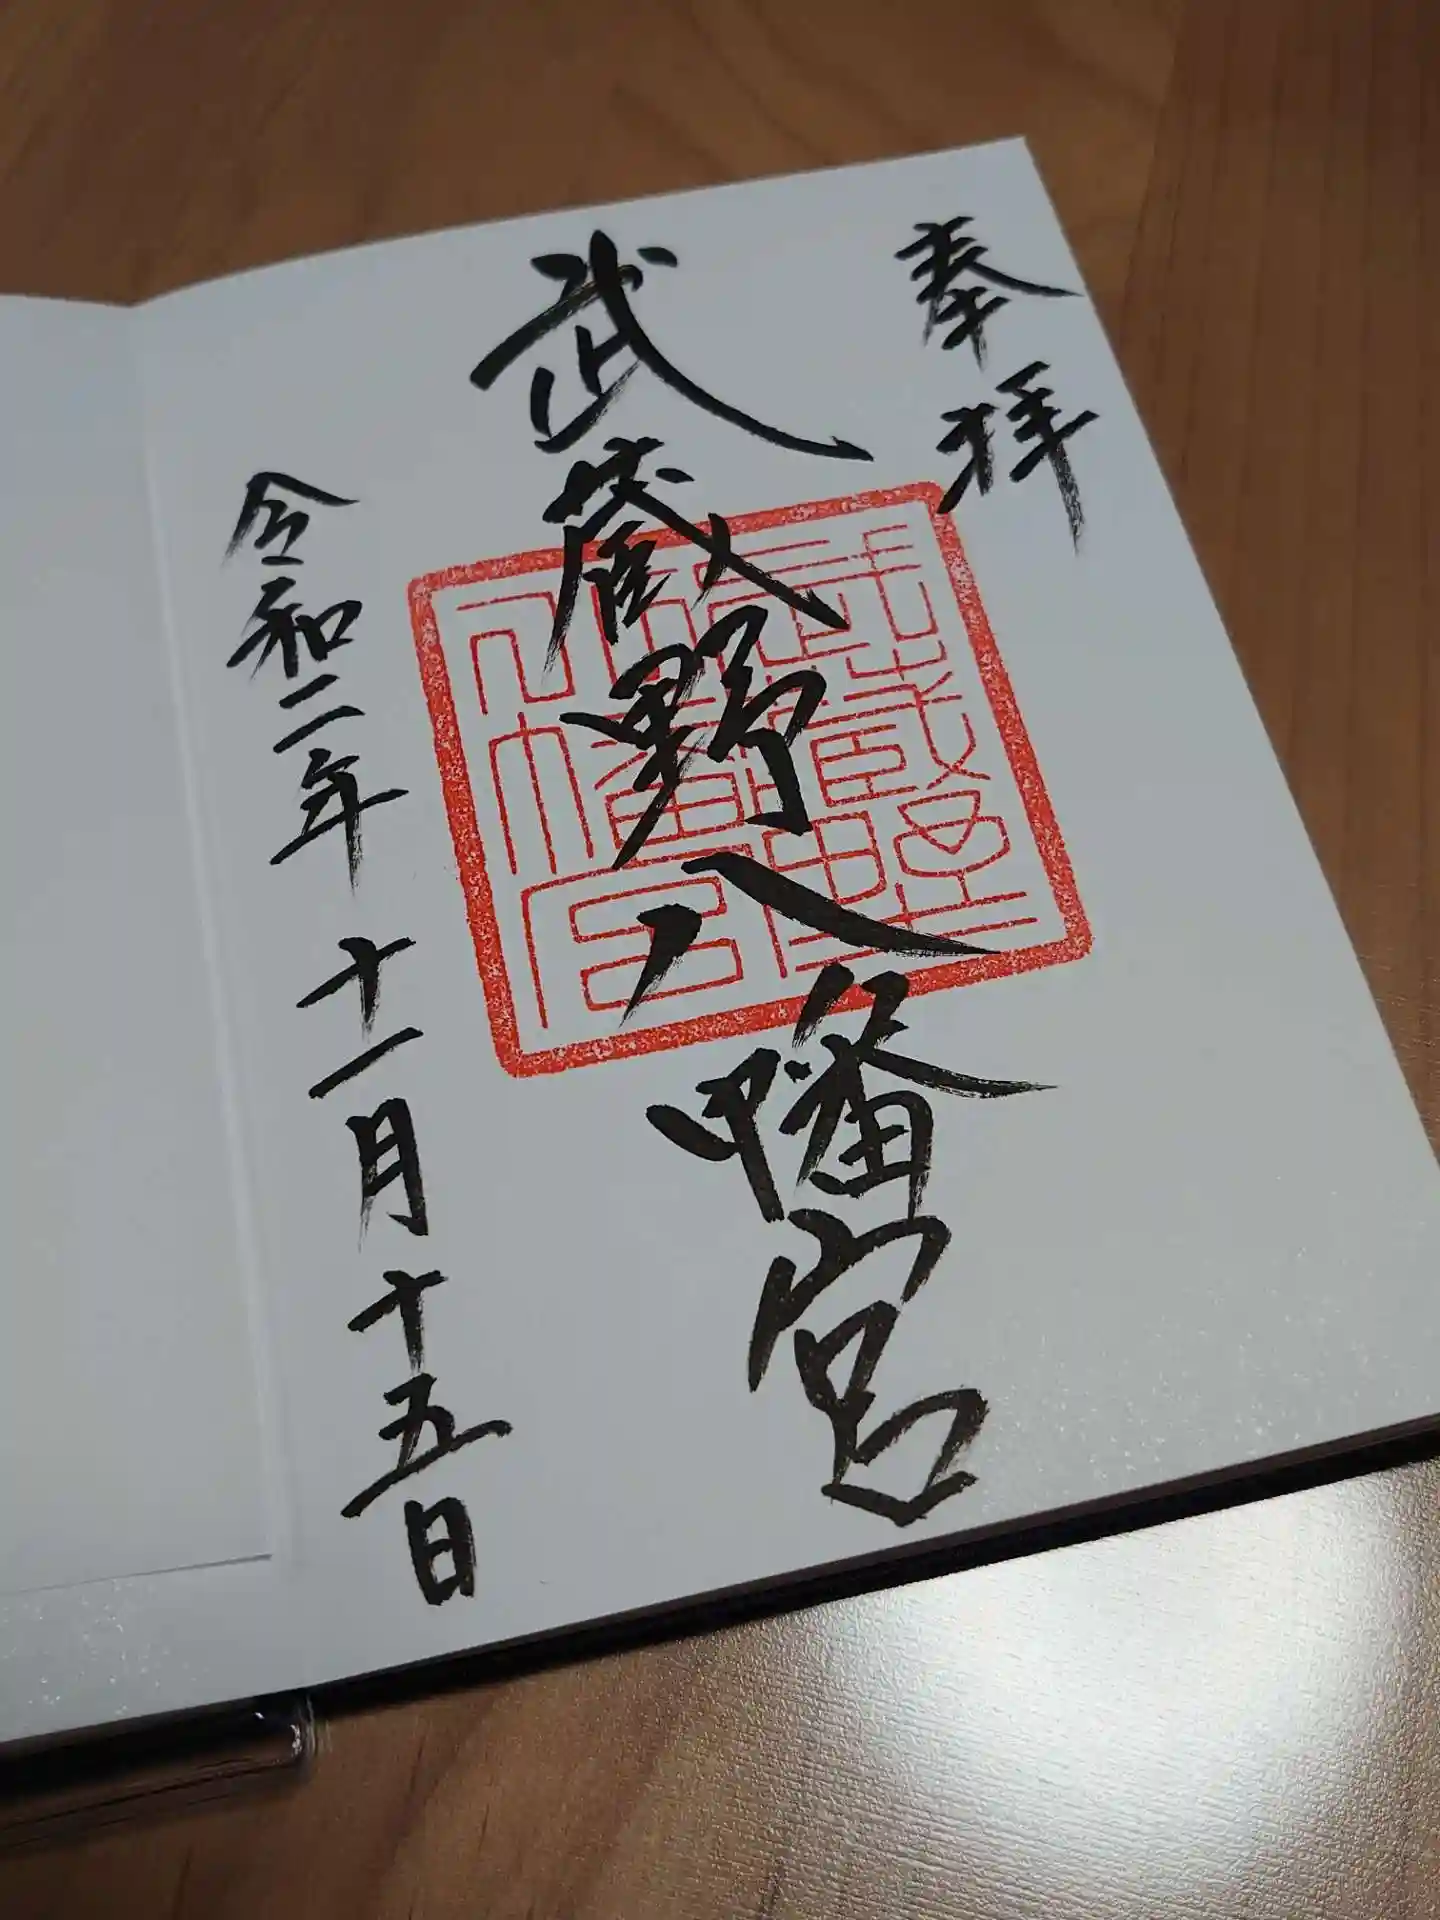 奉拝
武蔵野八幡宮
令和二年十一月十五日
武蔵野
八幡宮